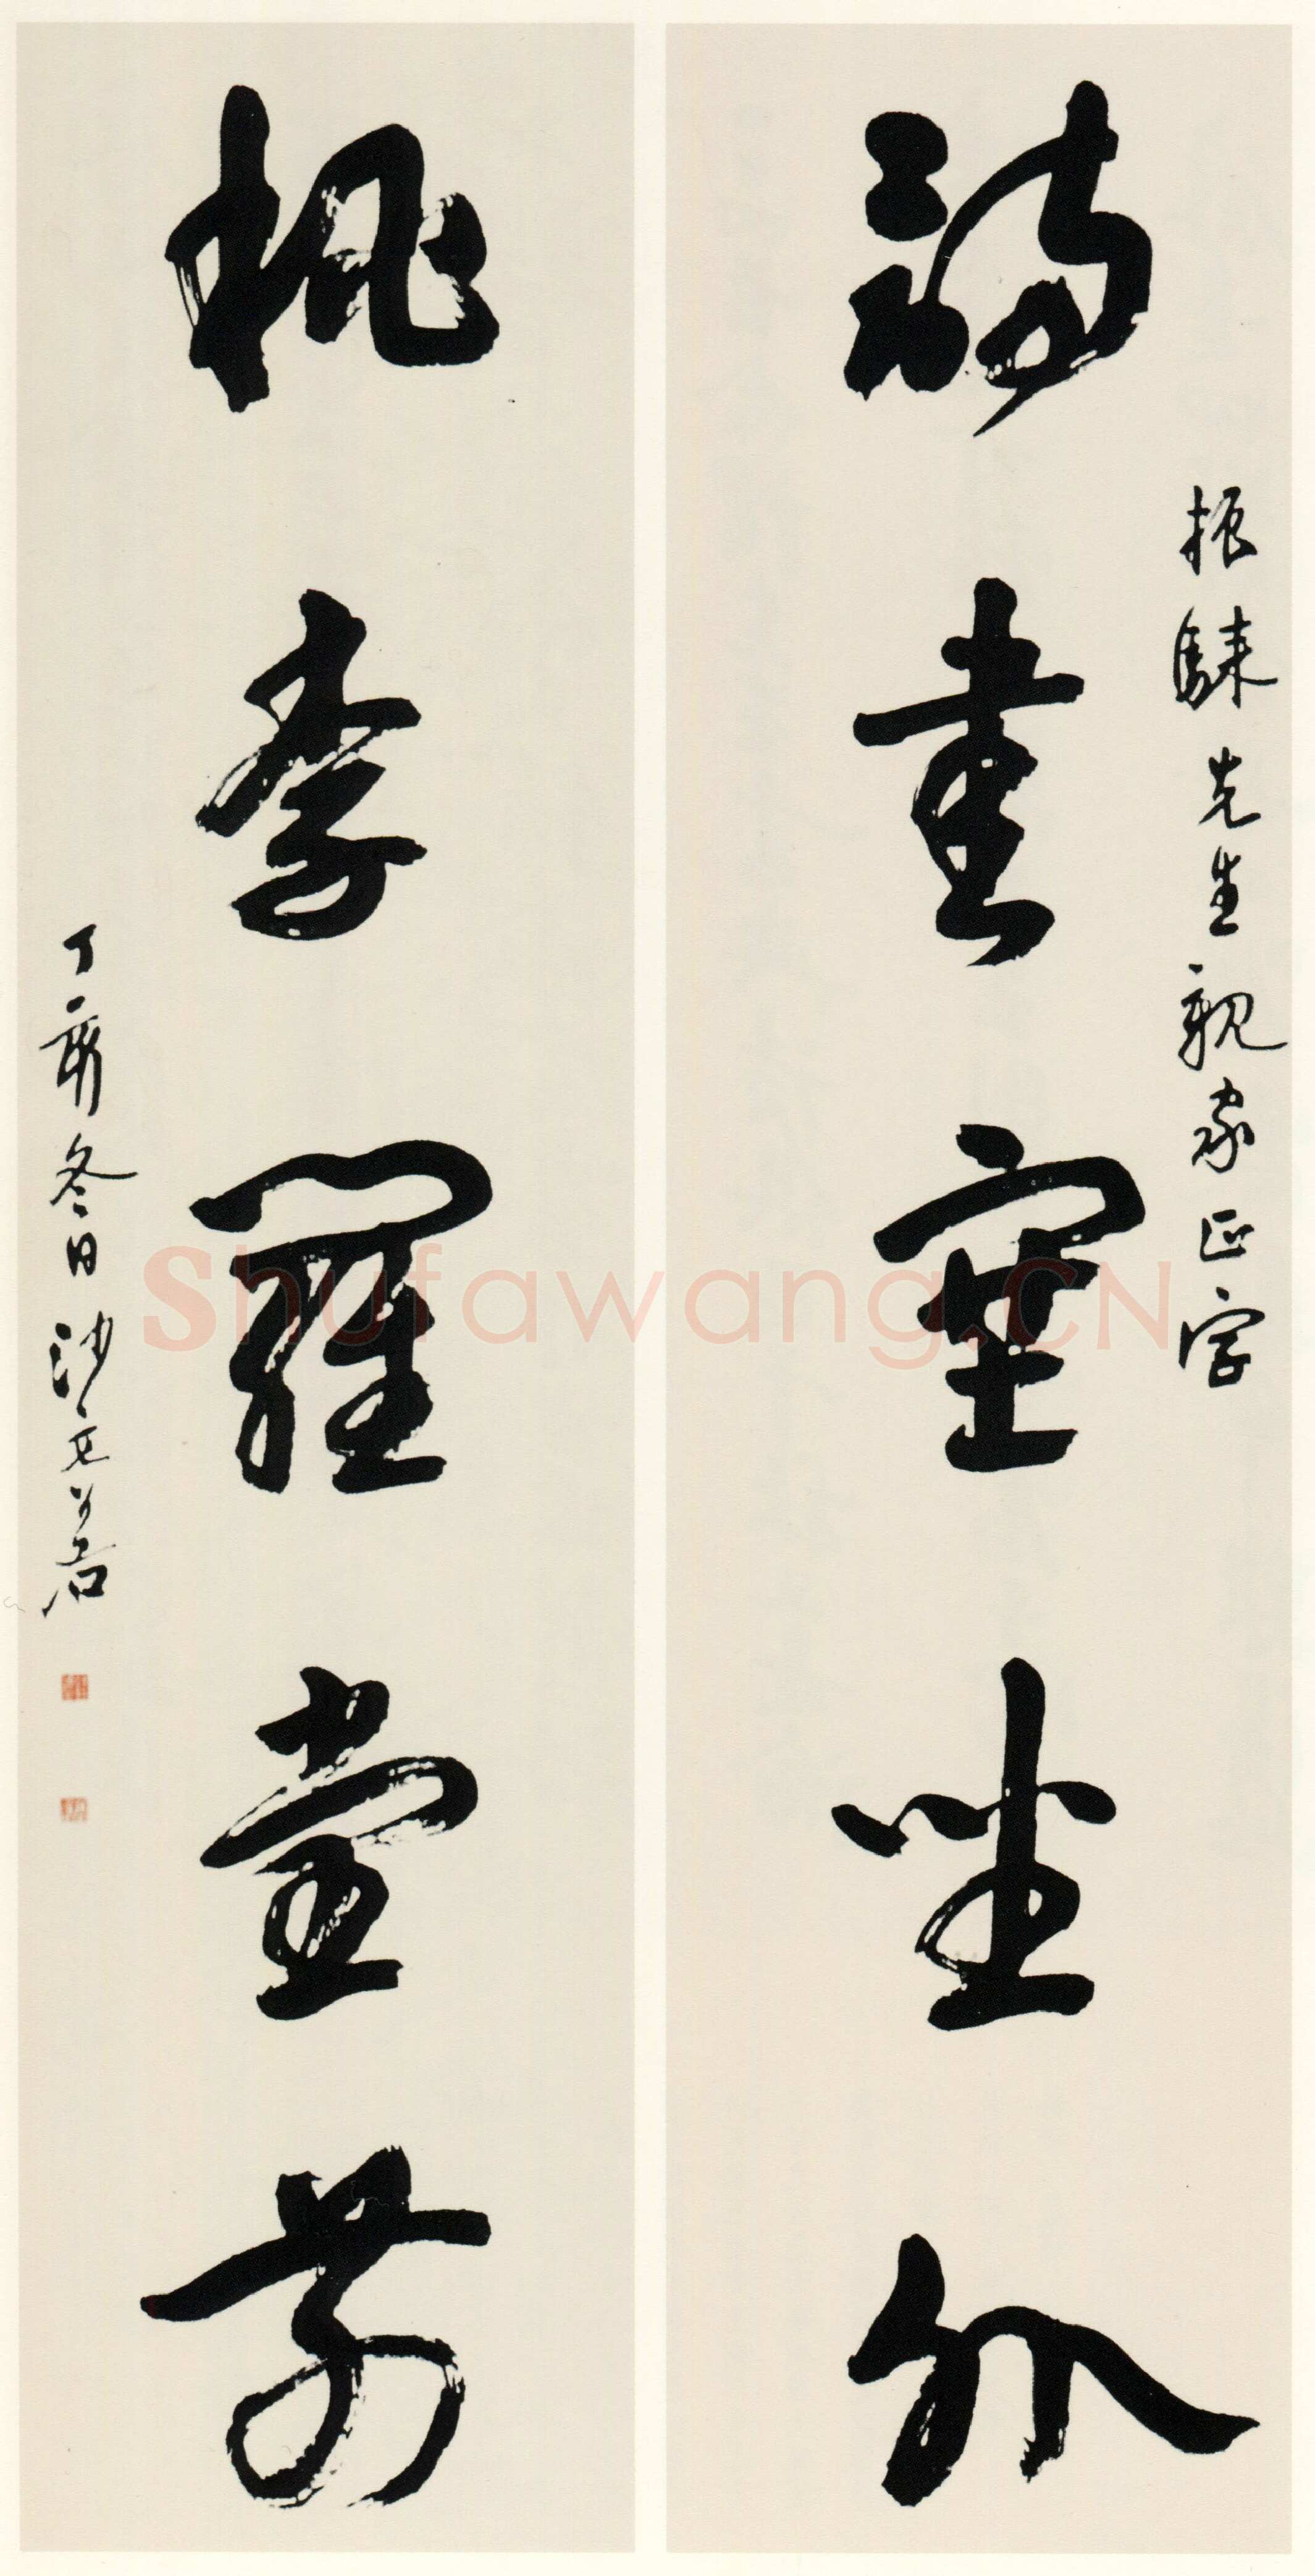 振騋先生親家正字
詩書塞坐外
桃李羅堂前
丁亥冬日沙孟海
Shufawang.CN